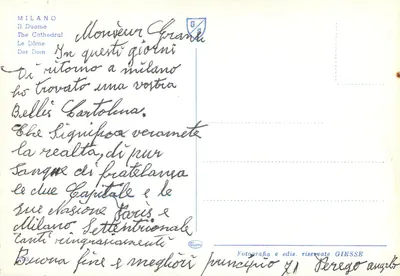 MILANO
Il Duomo
The Cathedral
Le Dôme
Der Dom
Monsieur
In questi giorni
Di ritorno a milano
ho trovato una vostra
Bellis Cartolina.
Che Significa veramete
la realtà, di pur
Sangue di fratelanza
le due Capitale e le
sue Nasione Paris e
Milano Settentrionale
tanti ringrasiamenti
Buona fine e megliori principio
Perego angelo
Fotografia e ediz. riservate GIESSE